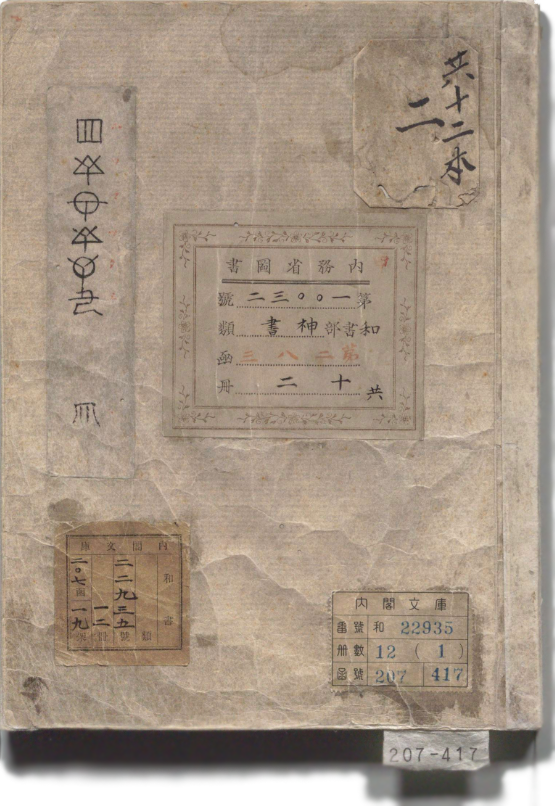 共十二本
二
内務省圖書
第一〇〇三二號
和書部神書類
第二八三函
共十二冊
内閣文庫
和書
類
二二九三五號
一二冊
二〇七函一九
内閣文庫
番號 和 22935
冊數 12 ( 1 )
函號 207 417
207-417